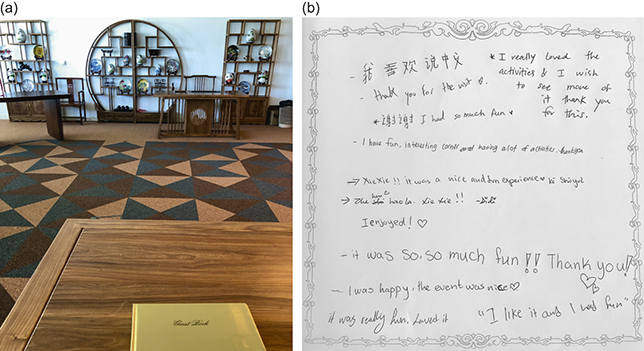 (a)
Guest Book
(b)
- 我 喜欢 说中文
- thank you for the visit ♡.
* 谢谢 I had so much fun *
* I really loved the
activities & I wish
to see more of
it thank you
for this.
- I have fun, interesting corner and having alot of activities.
→ Xie Xie!! it was a nice and fun experience
→ hao la. Xie Xie!!
I enjoyed! ♡
- it was so, so much fun!! Thank you!
- I was happy, the event was nice ♡
it was really fun, Loved it
"I like it and I had fun"